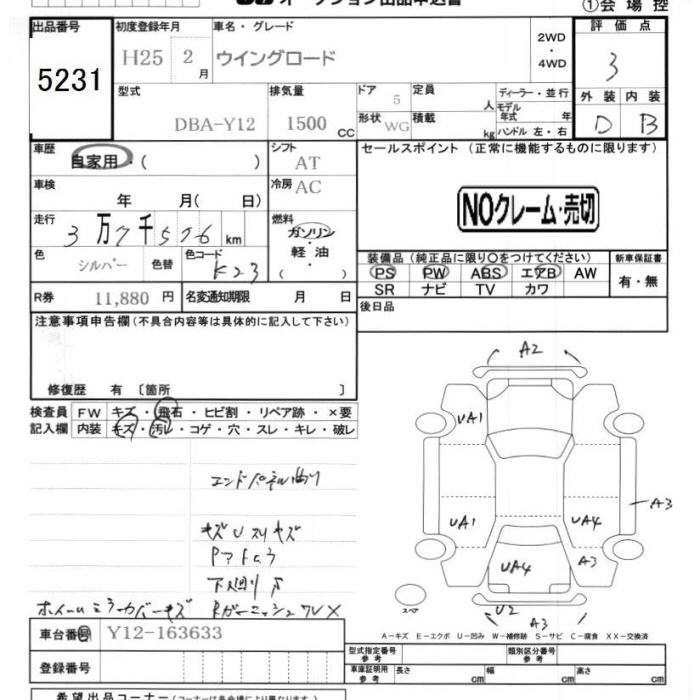 オークション出品申込書
①会場控
出品番号
5231
初度登録年月
H25 2月
車名・グレード
ウイングロード
2WD
・
4WD
評価点
3
型式
DBA-Y12
排気量
1500 CC
ドア
5
定員
人
形状
WG
積載
kg
ディーラー・並行
モデル年式 年
ハンドル 左・右
外装 内装
D B
車歴
自家用・( )
シフト
AT
セールスポイント (正常に機能するものに限ります)
車検
年 月( 日)
冷房
AC
NOクレーム・売切
走行
3万7千576km
燃料
ガソリン
・
軽油
・
( )
色
シルバー
色替
色コード
K23
装備品 (純正品に限り○をつけてください)
PS PW ABS エアB AW
SR ナビ TV カワ
新車保証書
有・無
R券 11,880円
名変通知期限 月 日
後日品
注意事項申告欄(不具合内容等は具体的に記入して下さい)
修復歴 有 〔箇所 〕
検査員
記入欄
FW キズ・飛石・ヒビ割・リペア跡・×要
内装 キズ・汚レ・コゲ・穴・スレ・キレ・破レ
エンドパネル曲り
キズUスリキズ
下廻りサ
ホイールミラーカバーキズ
A2
UA1
UA1
UA4
A3
A3
UA4
U2
A3
スペア
A−キズ E−エクボ U−凹み W−補修跡 S−サビ C−腐食 XX−交換済
車台番号 Y12-163633
登録番号
型式指定番号
参考
類別区分番号
参考
車庫証明用
参考
長さ cm
幅 cm
高さ cm
希望出品コーナー(コーナーは各会場により異なります)